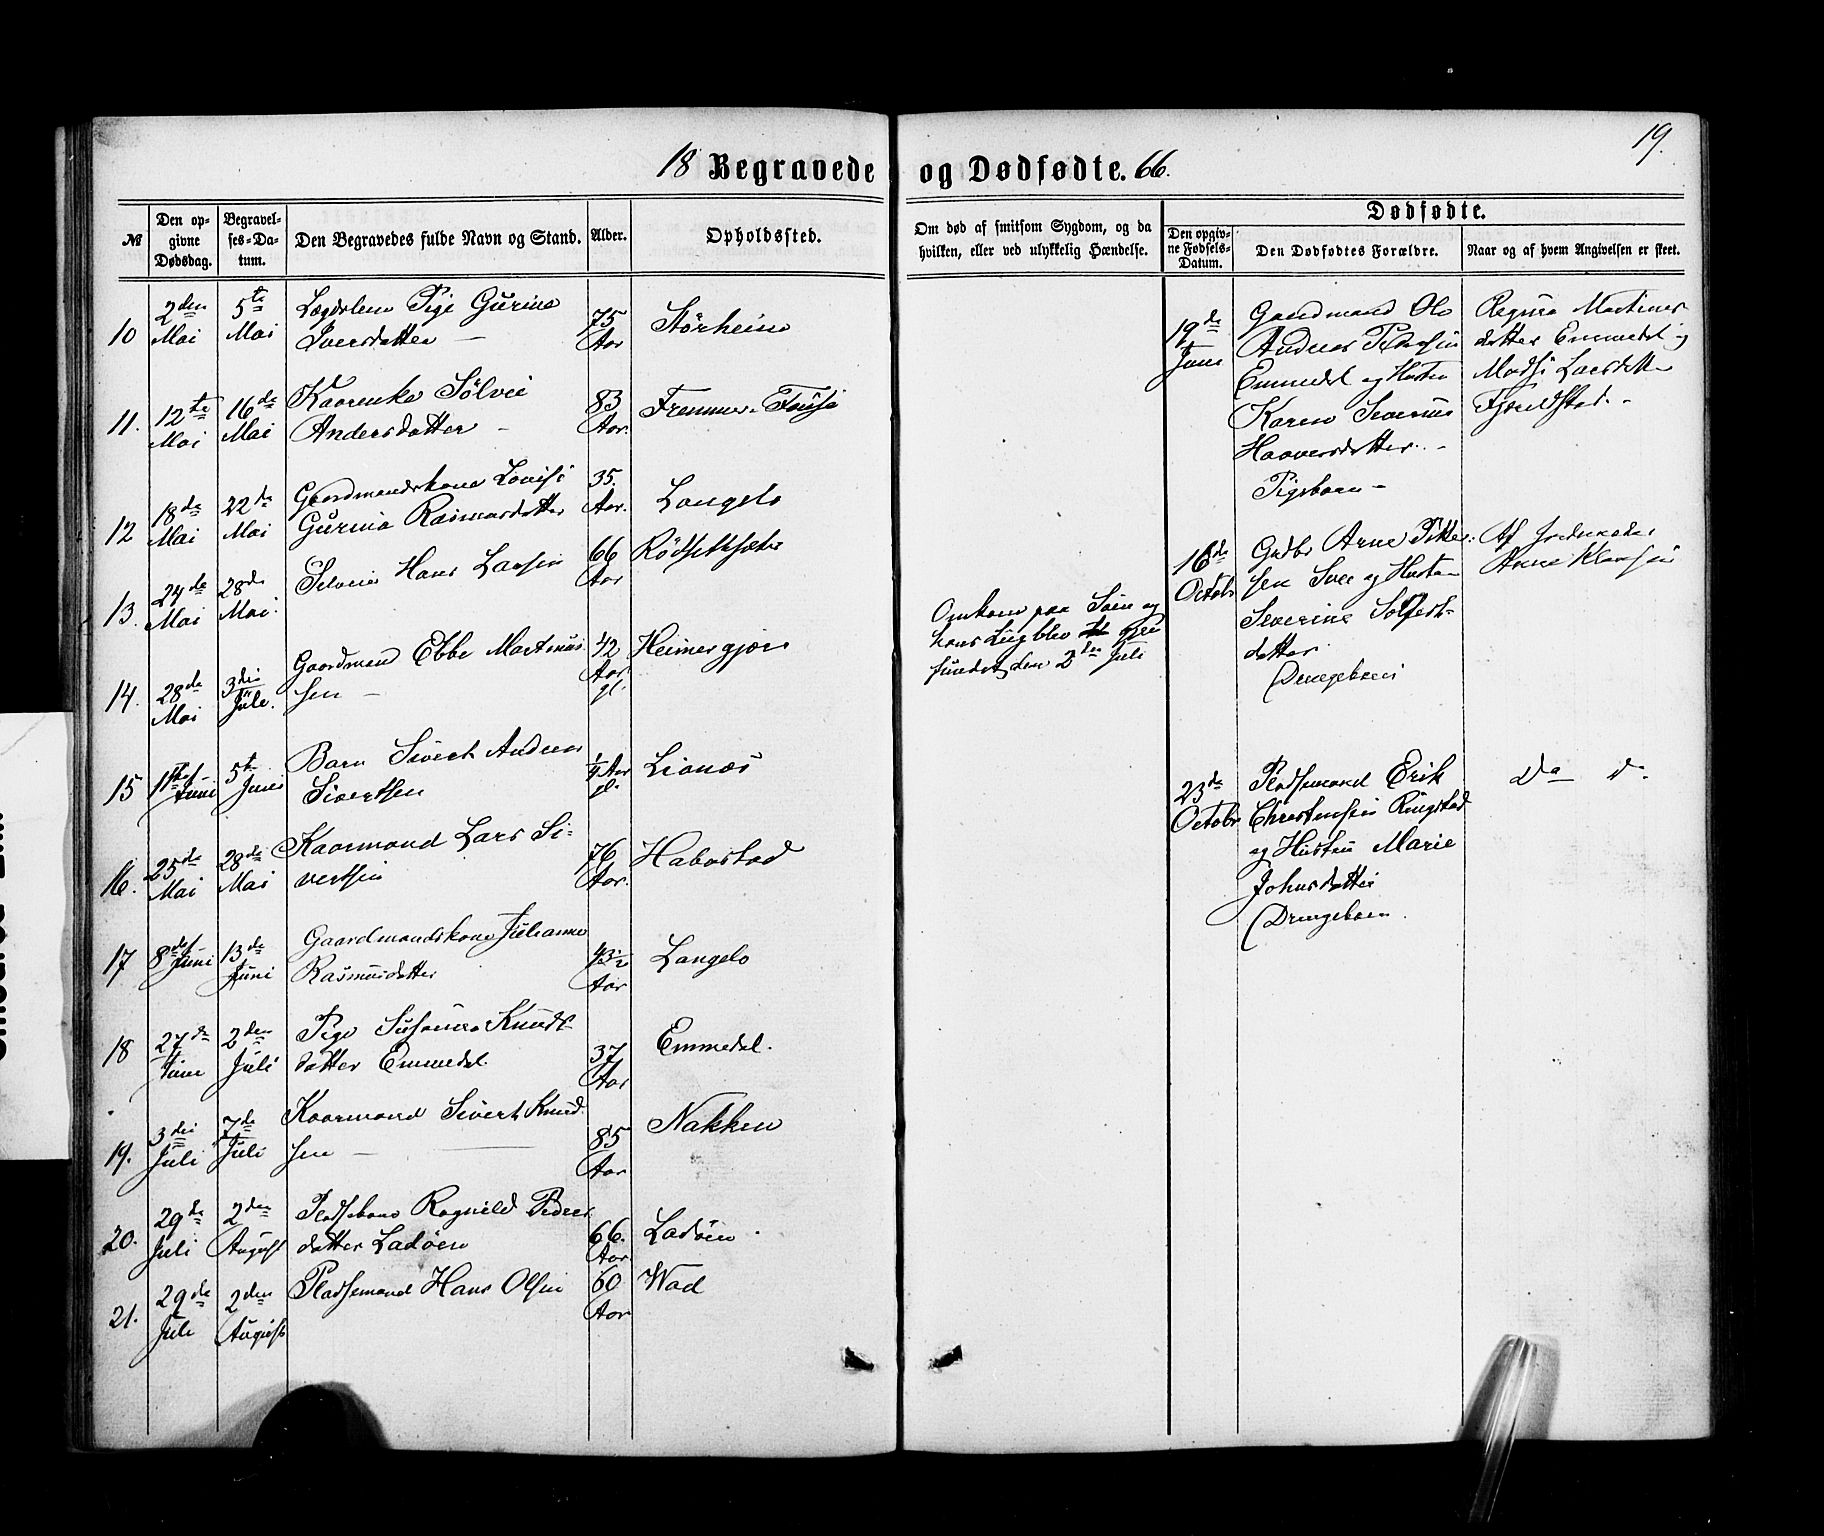 19.
18 Begravede og Dødfødte. 66.
№
Den opgivne Dødsdag.
Begravelses-Datum.
Den Begravedes fulde Navn og Stand.
Alder.
Opholdssted.
Om død af smitsom Sygdom, og da hvilken, eller ved ulykkelig Hændelse.
Dødfødte.
Den opgivne Fødsels-Datum.
Den Dødfødtes Forældre.
Naar og af hvem Angivelsen er skeet.
10 2den Mai 5te Mai Lægdslem Pige Gurine
Iversdatter — 75 Aar Störheim
11. 12te Mai 16de Mai Kaarenke Sølvie
Andersdatter — 83 Aar. Fremmer-
12 18de Mai 22de Mai Gaardmandskone Lovise
Gurina Rasmusdatter 35. Aar. Langelo
13. 24de Mai 28de Mai. Hans Larsen 66 Aar Rödsetsæter
14. 28de Mai 3die Juli. Gaardmand Ebbe Martinus
sen — 42 Aar gl. Heimergjær
15 1ste Juni 5te Juni Barn Sivert Andreas
Sivertsen ¼ Aar gl. Lianæs
16. 25de Mai 28de Mai Kaarmand Lars Si-
vertsen 76 Aar. Habostad
17 8de Juni 13de Juni Gaardmandskone Julianne
Rasmusdatter 43½ Aar Langelo
18 27de Juni 2den Juli Pige Susanna Knuds
datter Emmedal. 37 Aar Emmedal.
19. 3die Juli 7de Juli Kaarmand Sivert Knud
sen — 85 Aar Nakken
20. 29de Juli 2den August Pladsekone Ragnild Peders
datter Ladöen 66. Aar Ladöen.
21. 29de Juli 2den August Pladsemand Hans Olsen 60 Aar Wad
Omkom paa Söen og
hans Liig blev gjen
fundet den 2den Juli
19de Juni
Gaardmand Ole
Andreas Pedersen
Emmedal og Hustru
Karen Severine
Haaversdatter. -
Pigebarn -
Regina Martinus
datter Emmedal og
Madsi Larsdatter
Fjeldstad. -
16de Octobr
Grdbr Arne Petter
sen og Hustru
Severine
datter
Drengebarn
Af Jordemoder
Anne Klausen
23de Octobr
Pladsemand Erik
Christensen Ringstad
og Hustru Marie
Johnsdatter
Drengebarn.
Do do